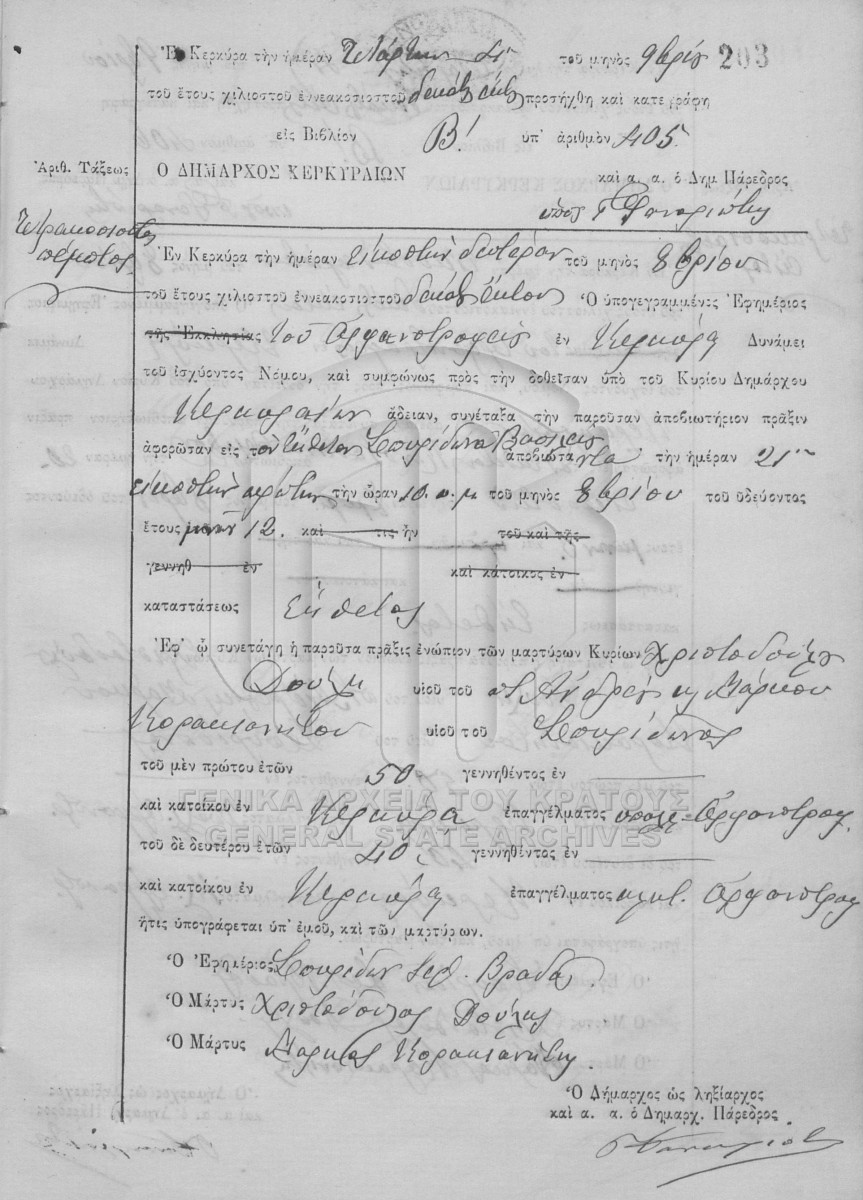 Ἐν Κερκύρα τὴν ἡμέραν Τετάρτην 4 τοῦ μηνὸς 9βρίου 203
τοῦ ἔτους χιλιοστοῦ ἐννεακοσιοστοῦ δεκάτου ἕκτου προσήχθη καὶ κατεγράφη
εἰς Βιβλίον Β! ὑπ' ἀριθμὸν 405
Ἀριθ. Τάξεως Ο ΔΗΜΑΡΧΟΣ ΚΕΡΚΥΡΑΙΩΝ καὶ α. α. ὁ Δημ Πάρεδρος
Τετρακοσιοστός
πέμπτος
Ἐν Κερκύρα τὴν ἡμέραν εἰκοστὴν δευτέραν τοῦ μηνὸς 8βρίου
τοῦ ἔτους χιλιοστοῦ ἐννεακοσιοστοῦ δεκάτου ἕκτου Ὁ ὑπογεγραμμένος Ἐφημέριος
τῆς Ἐκκλησίας τοῦ Ὀρφανοτροφείου ἐν Κερκύρᾳ Δυνάμει
τοῦ ἰσχύοντος Νόμου, καὶ συμφώνως πρὸς τὴν δοθεῖσαν ὑπὸ τοῦ Κυρίου Δημάρχου
Κερκυραίων ἄδειαν, συνέταξα τὴν παροῦσαν ἀποβιωτήριον πρᾶξιν
ἀφορῶσαν εἰς τὸν ἔκθετον Σπυρίδωνα ἀποβιώσαντα τὴν ἡμέραν 21ην
εἰκοστὴν πρώτην τὴν ὥραν 10 π.μ τοῦ μηνὸς 8βρίου τοῦ ὁδεύοντος
ἔτους μηνῶν 12. καὶ τις ἦν τοῦ καὶ τῆς
γεννηθ ἐν καὶ κάτοικος ἐν
καταστάσεως Ἔκθετος
Ἐφ' ᾧ συνετάγη ἡ παροῦσα πρᾶξις ἐνώπιον τῶν μαρτύρων Κυρίων Χριστοδούλου
Δούλη υἱοῦ τοῦ π Ἀνδρέου κ Μάρκου
Κορακιανίτου υἱοῦ τοῦ Σπυρίδωνος
τοῦ μὲν πρώτου ἐτῶν 50 γεννηθέντος ἐν
καὶ κατοίκου ἐν Κερκύρᾳ ἐπαγγέλματος Ὀρφανοτροφ.
ΓΕΝΙΚΑ ΑΡΧΕΙΑ ΤΟΥ ΚΡΑΤΟΥΣ
GENERAL STATE ARCHIVES
τοῦ δὲ δευτέρου ἐτῶν 40 γεννηθέντος ἐν
καὶ κατοίκου ἐν Κερκύρᾳ ἐπαγγέλματος Ὀρφανοτροφ
ἥτις ὑπογράφεται ὑπ' ἐμοῦ, καὶ τῶν μαρτύρων.
Ὁ Ἐφημέριος Σπυρίδων Βραδᾶς
Ὁ Μάρτυς Χριστόδουλος Δούλης
Ὁ Μάρτυς Μάρκος Κορακιανίτης
Ὁ Δήμαρχος ὡς ληξίαρχος
καὶ α. α. ὁ Δημαρχ. Πάρεδρος